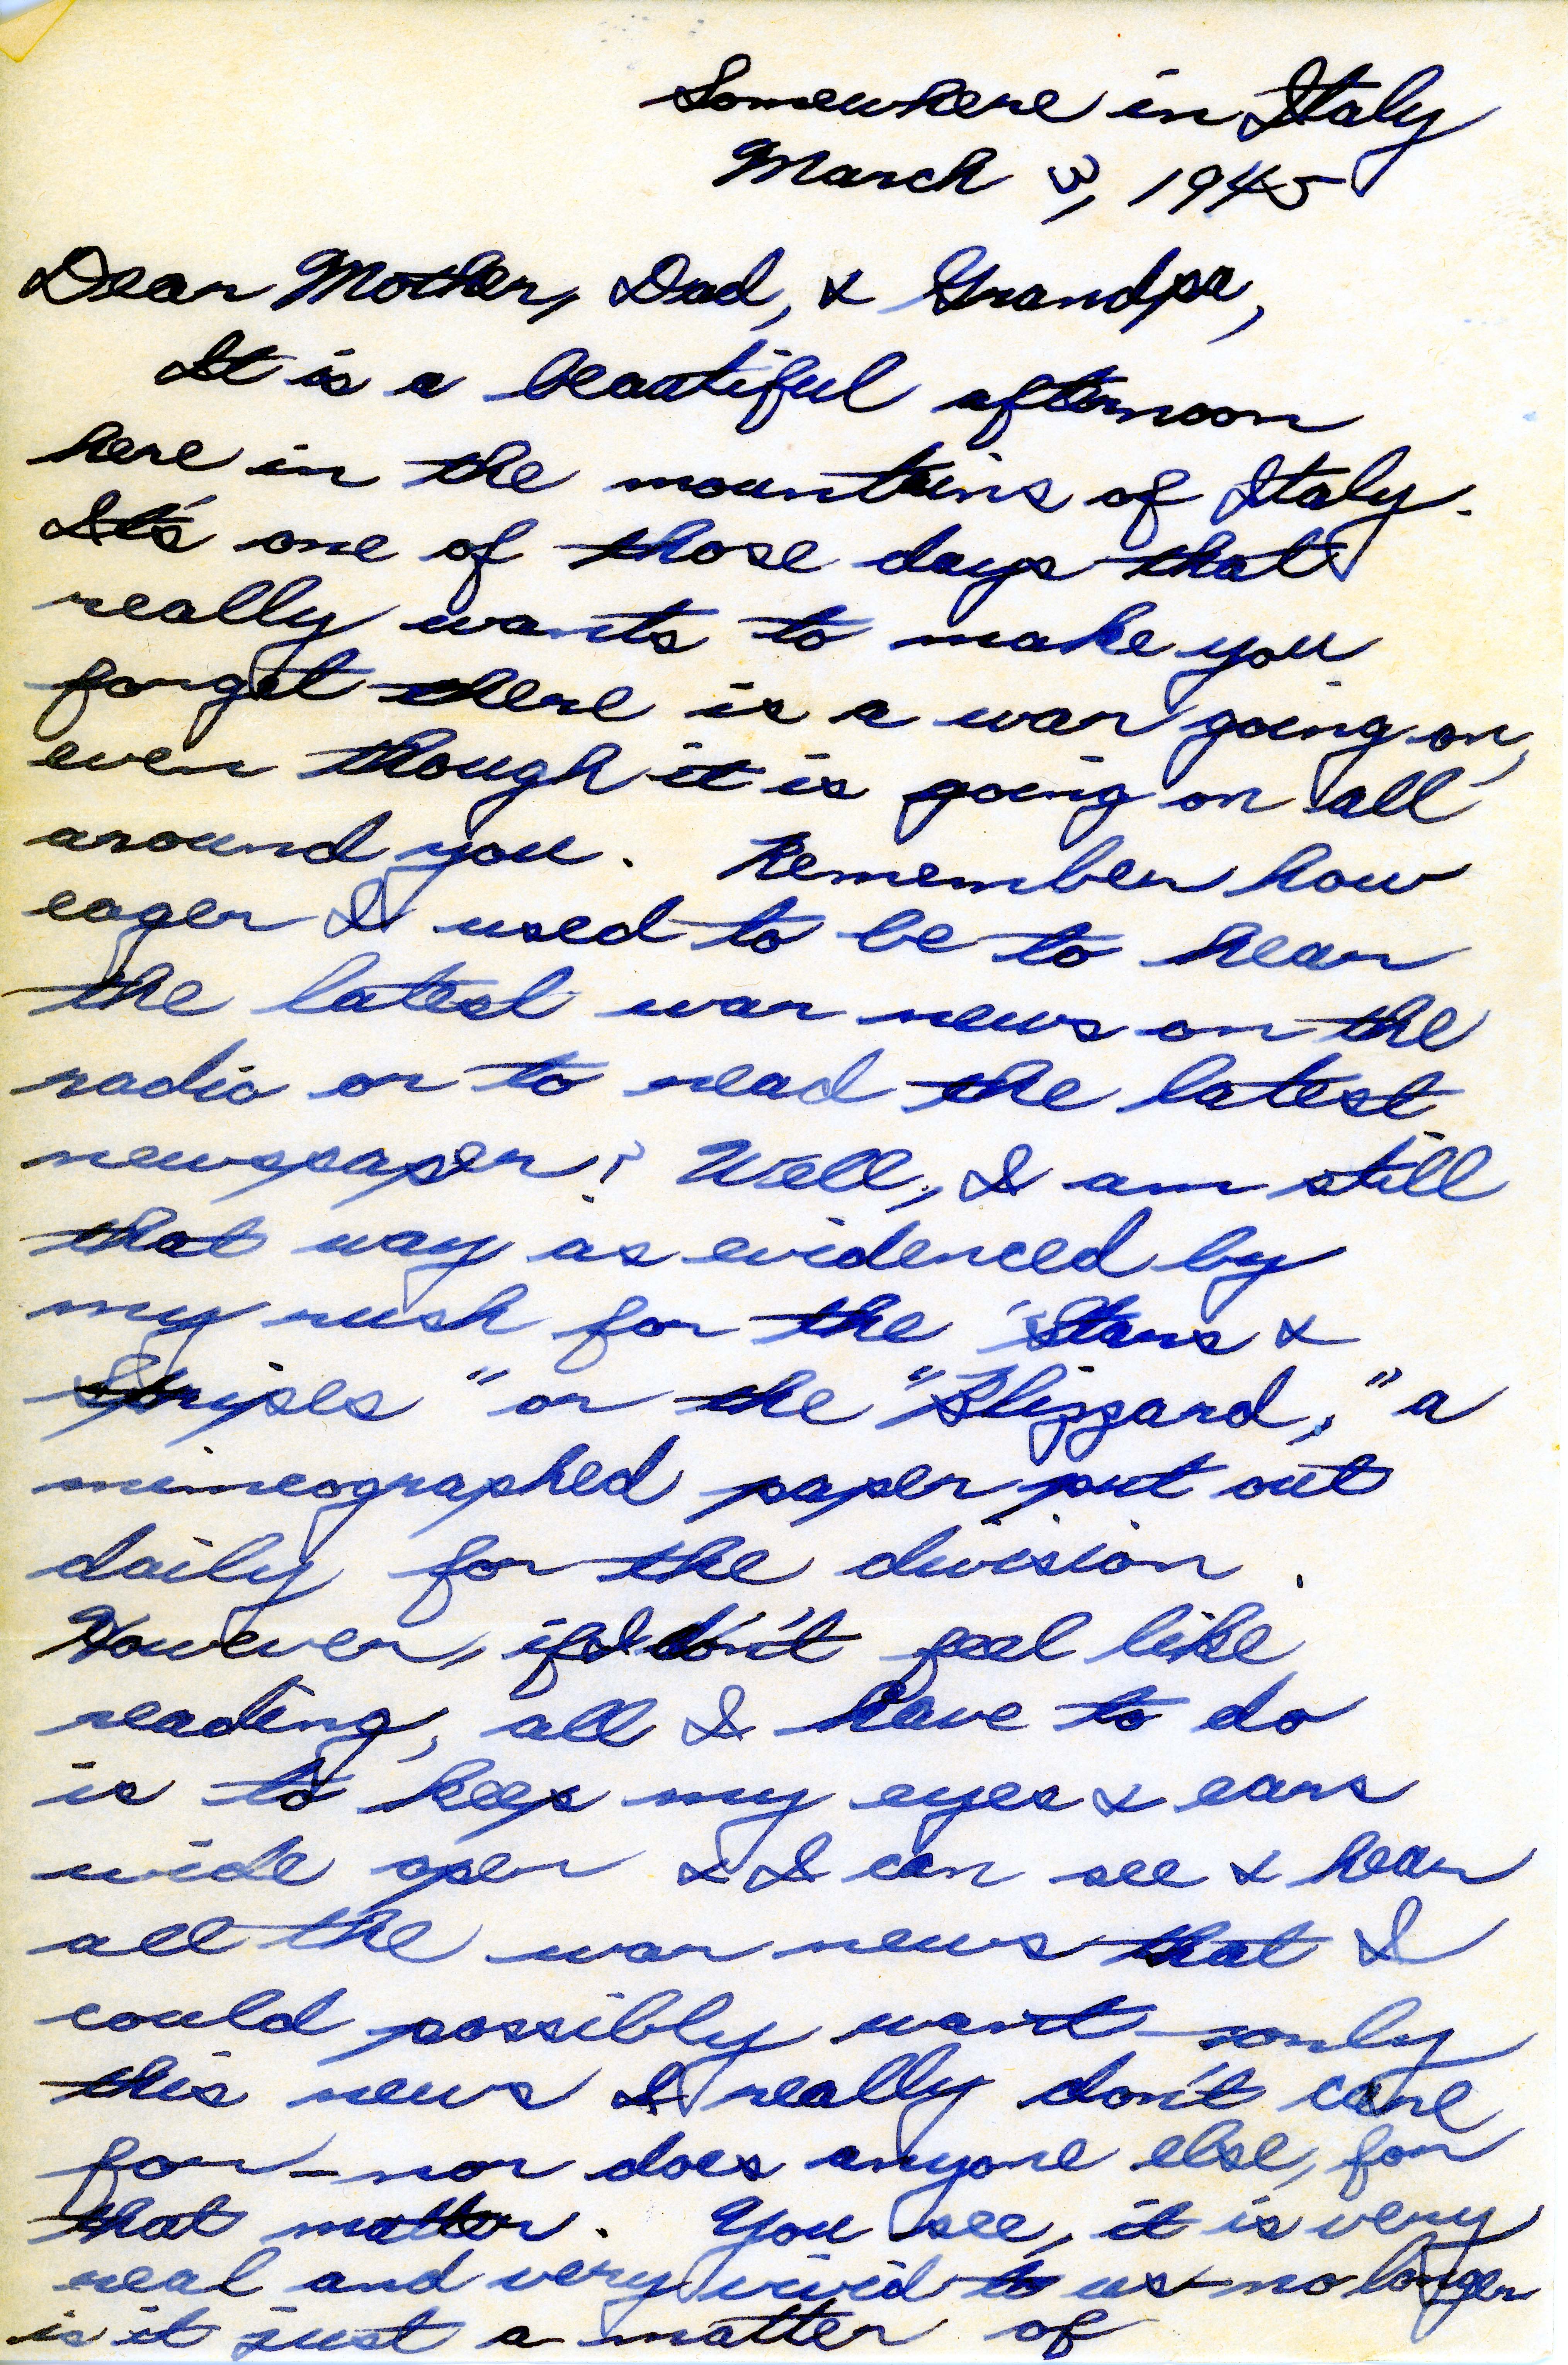 Somewhere in Italy
March 3, 1945
Dear Mother, Dad, & Grandpa,
It is a beautiful afternoon
here in the mountains of Italy.
It's one of those days that
really wants to make you
forget there is a war going on,
even though it is going on all
around you. Remember how
eager I used to be to hear
the latest war news on the
radio or to read the latest
newspaper? Well, I am still
that way as evidenced by
my rush for the "Stars &
Stripes" or the "Blizzard," a
mimeographed paper put out
daily for the division.
However, if I don't feel like
reading, all I have to do
is to keep my eyes & ears
wide open & I can see & hear
all the war news that I
could possibly want—only
this news I really don't care
for—nor does anyone else, for
that matter. You see, it is very
real and very vivid to us—no longer
is it just a matter of